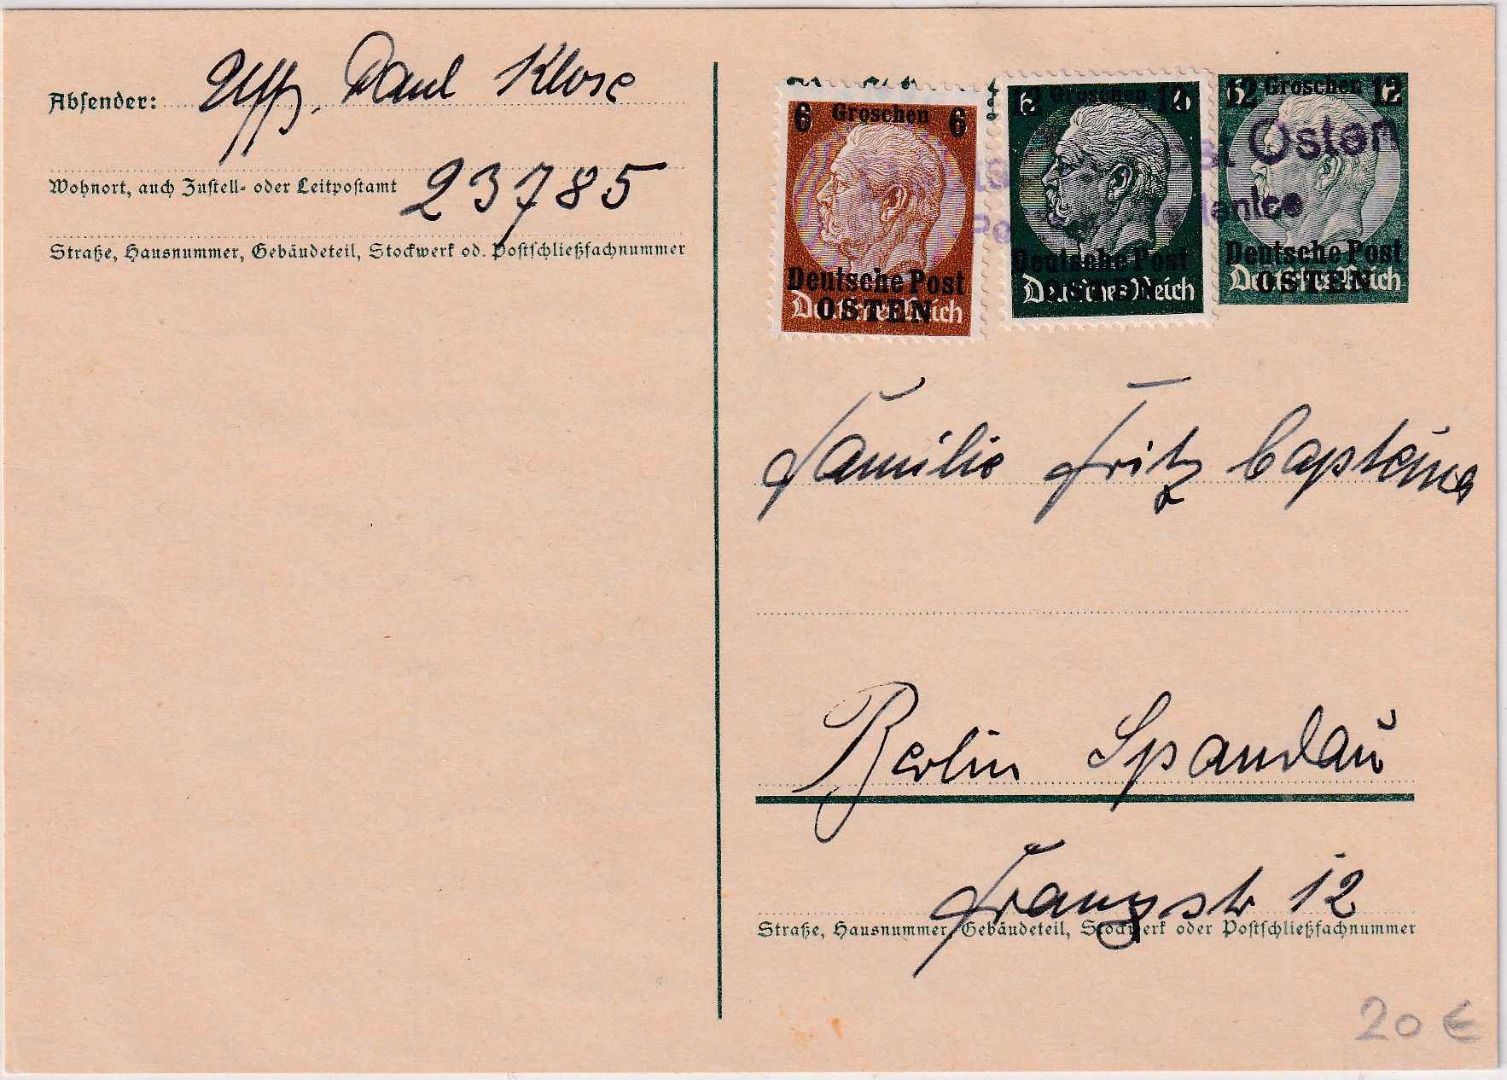 Absender: Uffz. Paul Klose
Wohnort, auch Zustell- oder Leitpostamt 23785
Straße, Hausnummer, Gebäudeteil, Stockwerk od. Postschließfachnummer
6 Groschen 6
Deutsche Post
OSTEN
Deutsches Reich
Groschen
Deutsche Post
OSTEN
Deutsches Reich
12 Groschen 12
Deutsche Post
OSTEN
Deutsches Reich
Osten
Familie Fritz
Berlin Spandau
Franzstr 12
Straße, Hausnummer, Gebäudeteil, Stockwerk oder Postschließfachnummer
20 €